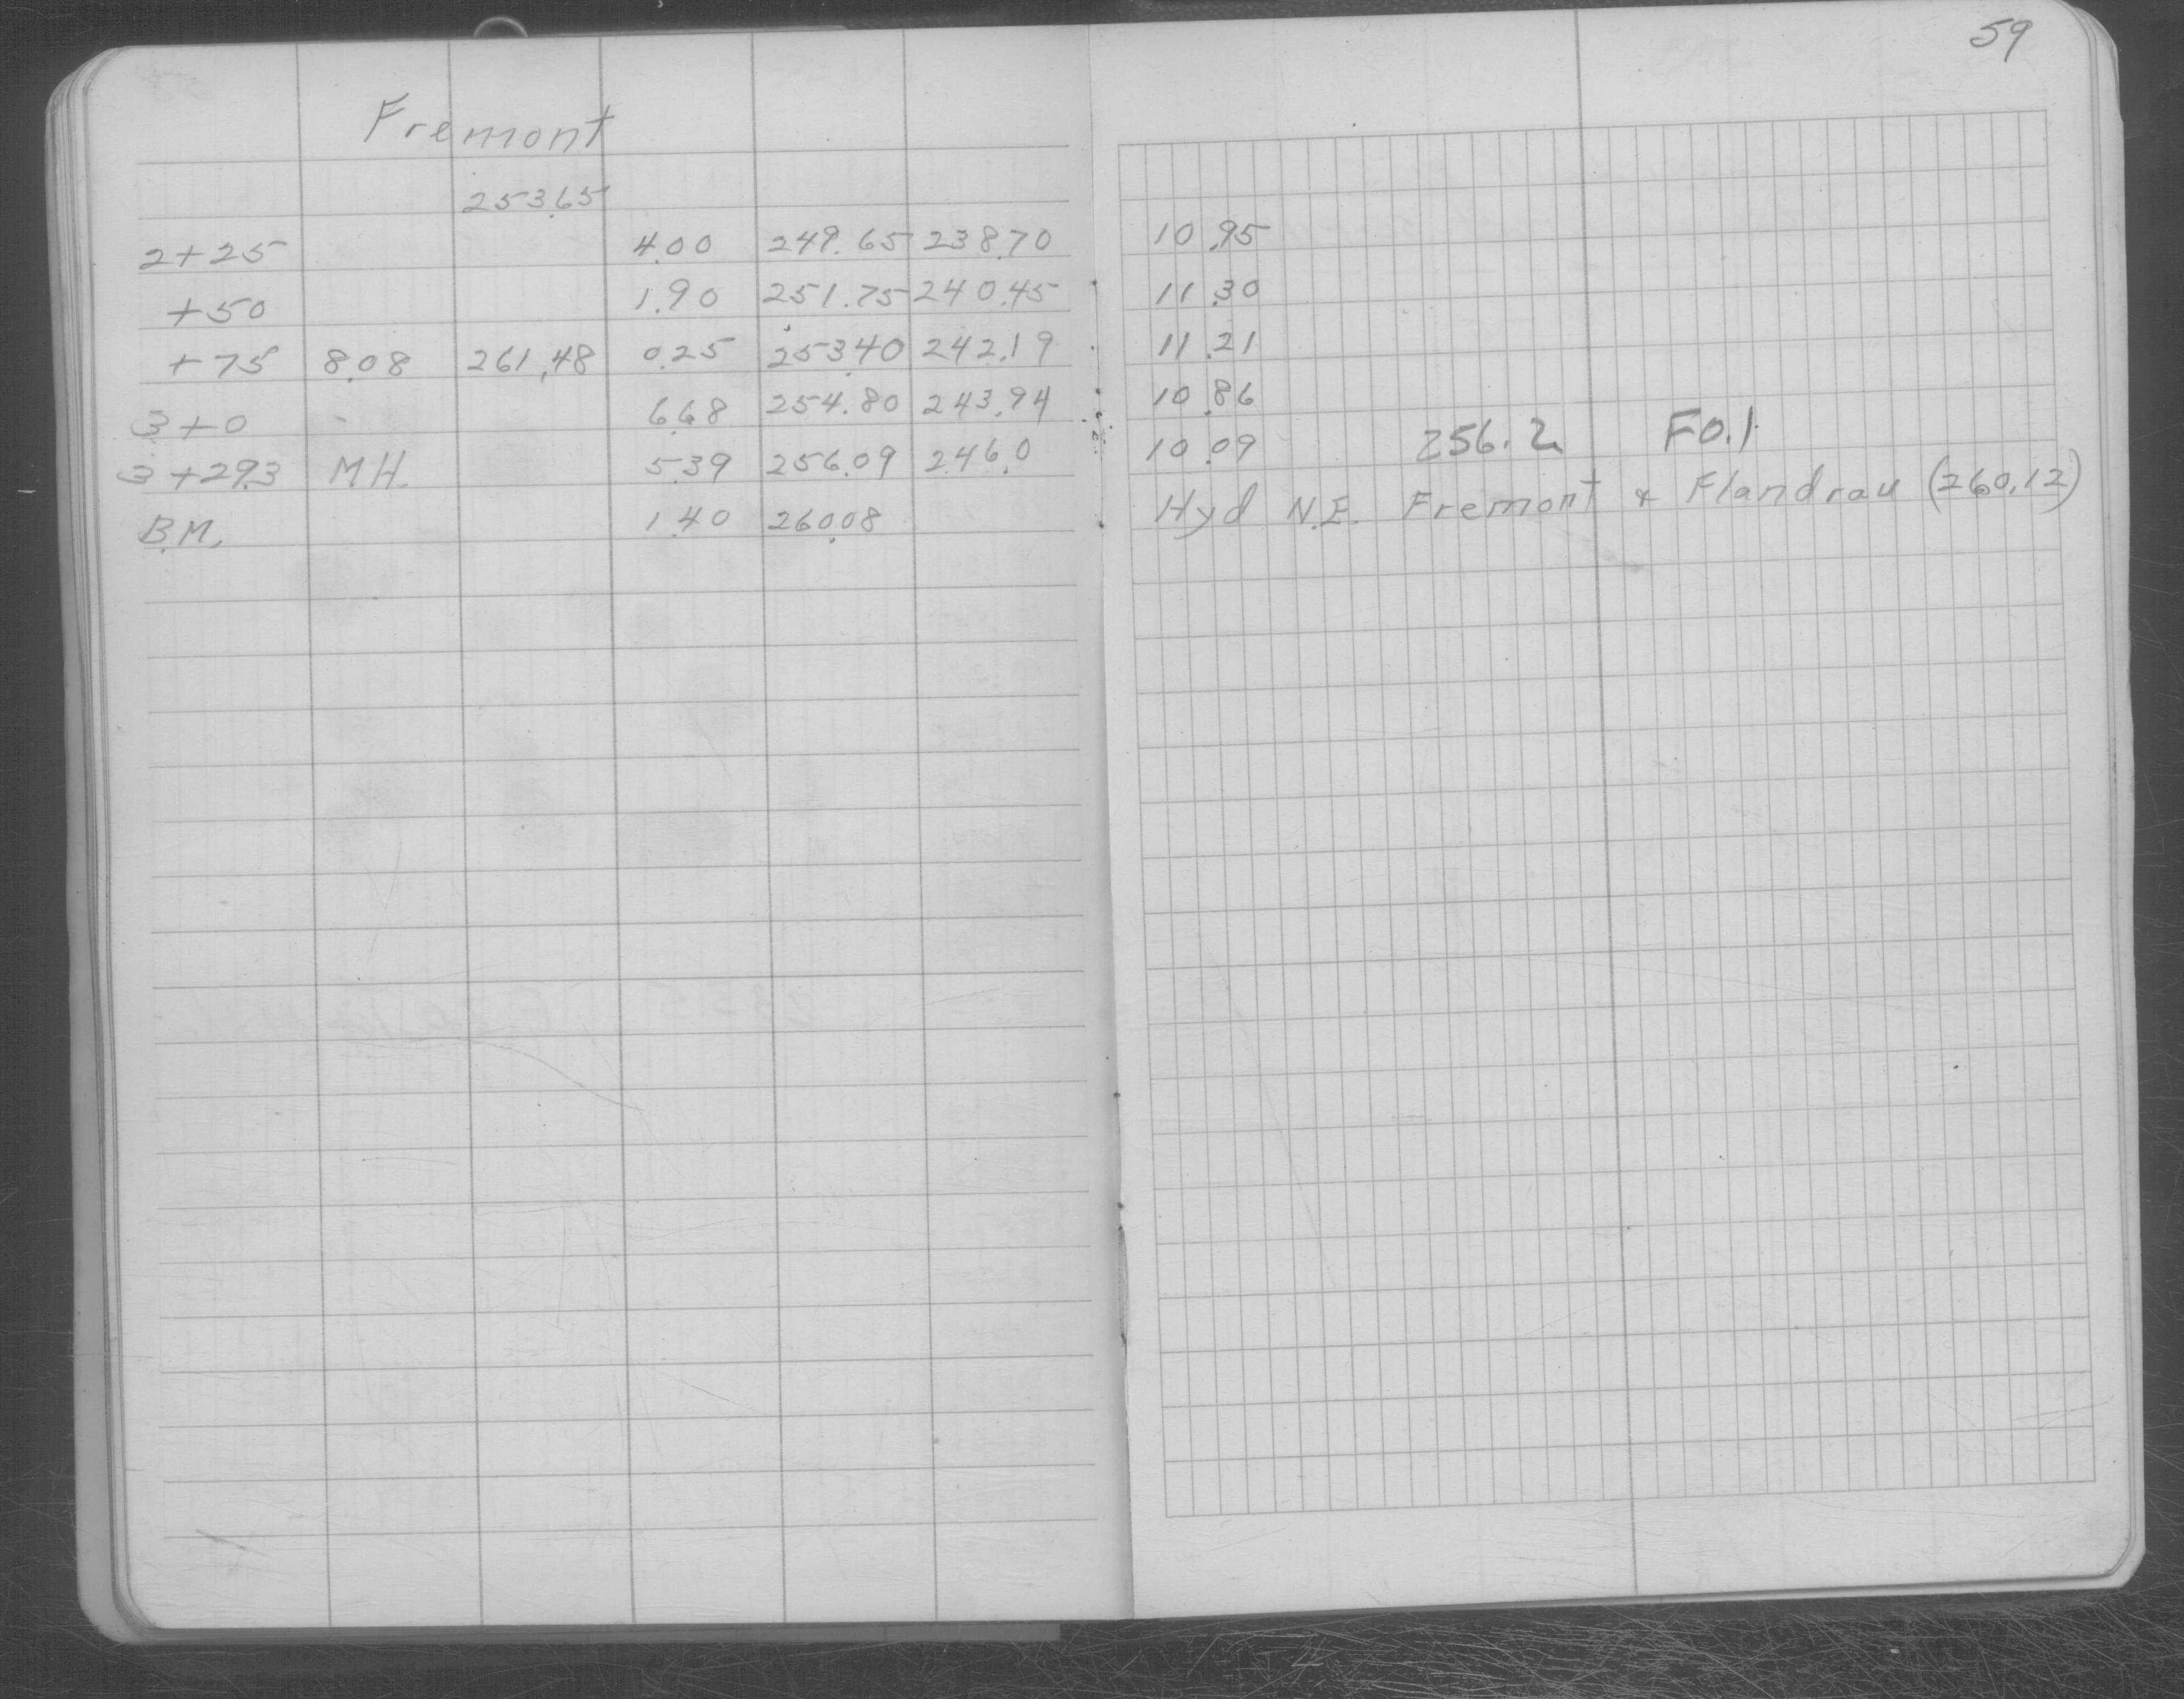 59
Fremont
253.65
2+25 4.00 249.65 238.70 10.95
+50 1.90 251.75 240.45 11.30
+75 8.08 261.48 0.25 253.40 242.19 11.21
3+0 - 6.68 254.80 243.94 10.86
3+29.3 MH. 5.39 256.09 246.0 10.09 256.2 F0.1
B.M. 1.40 260.08 Hyd N.E. Fremont & Flandrau (260.12)